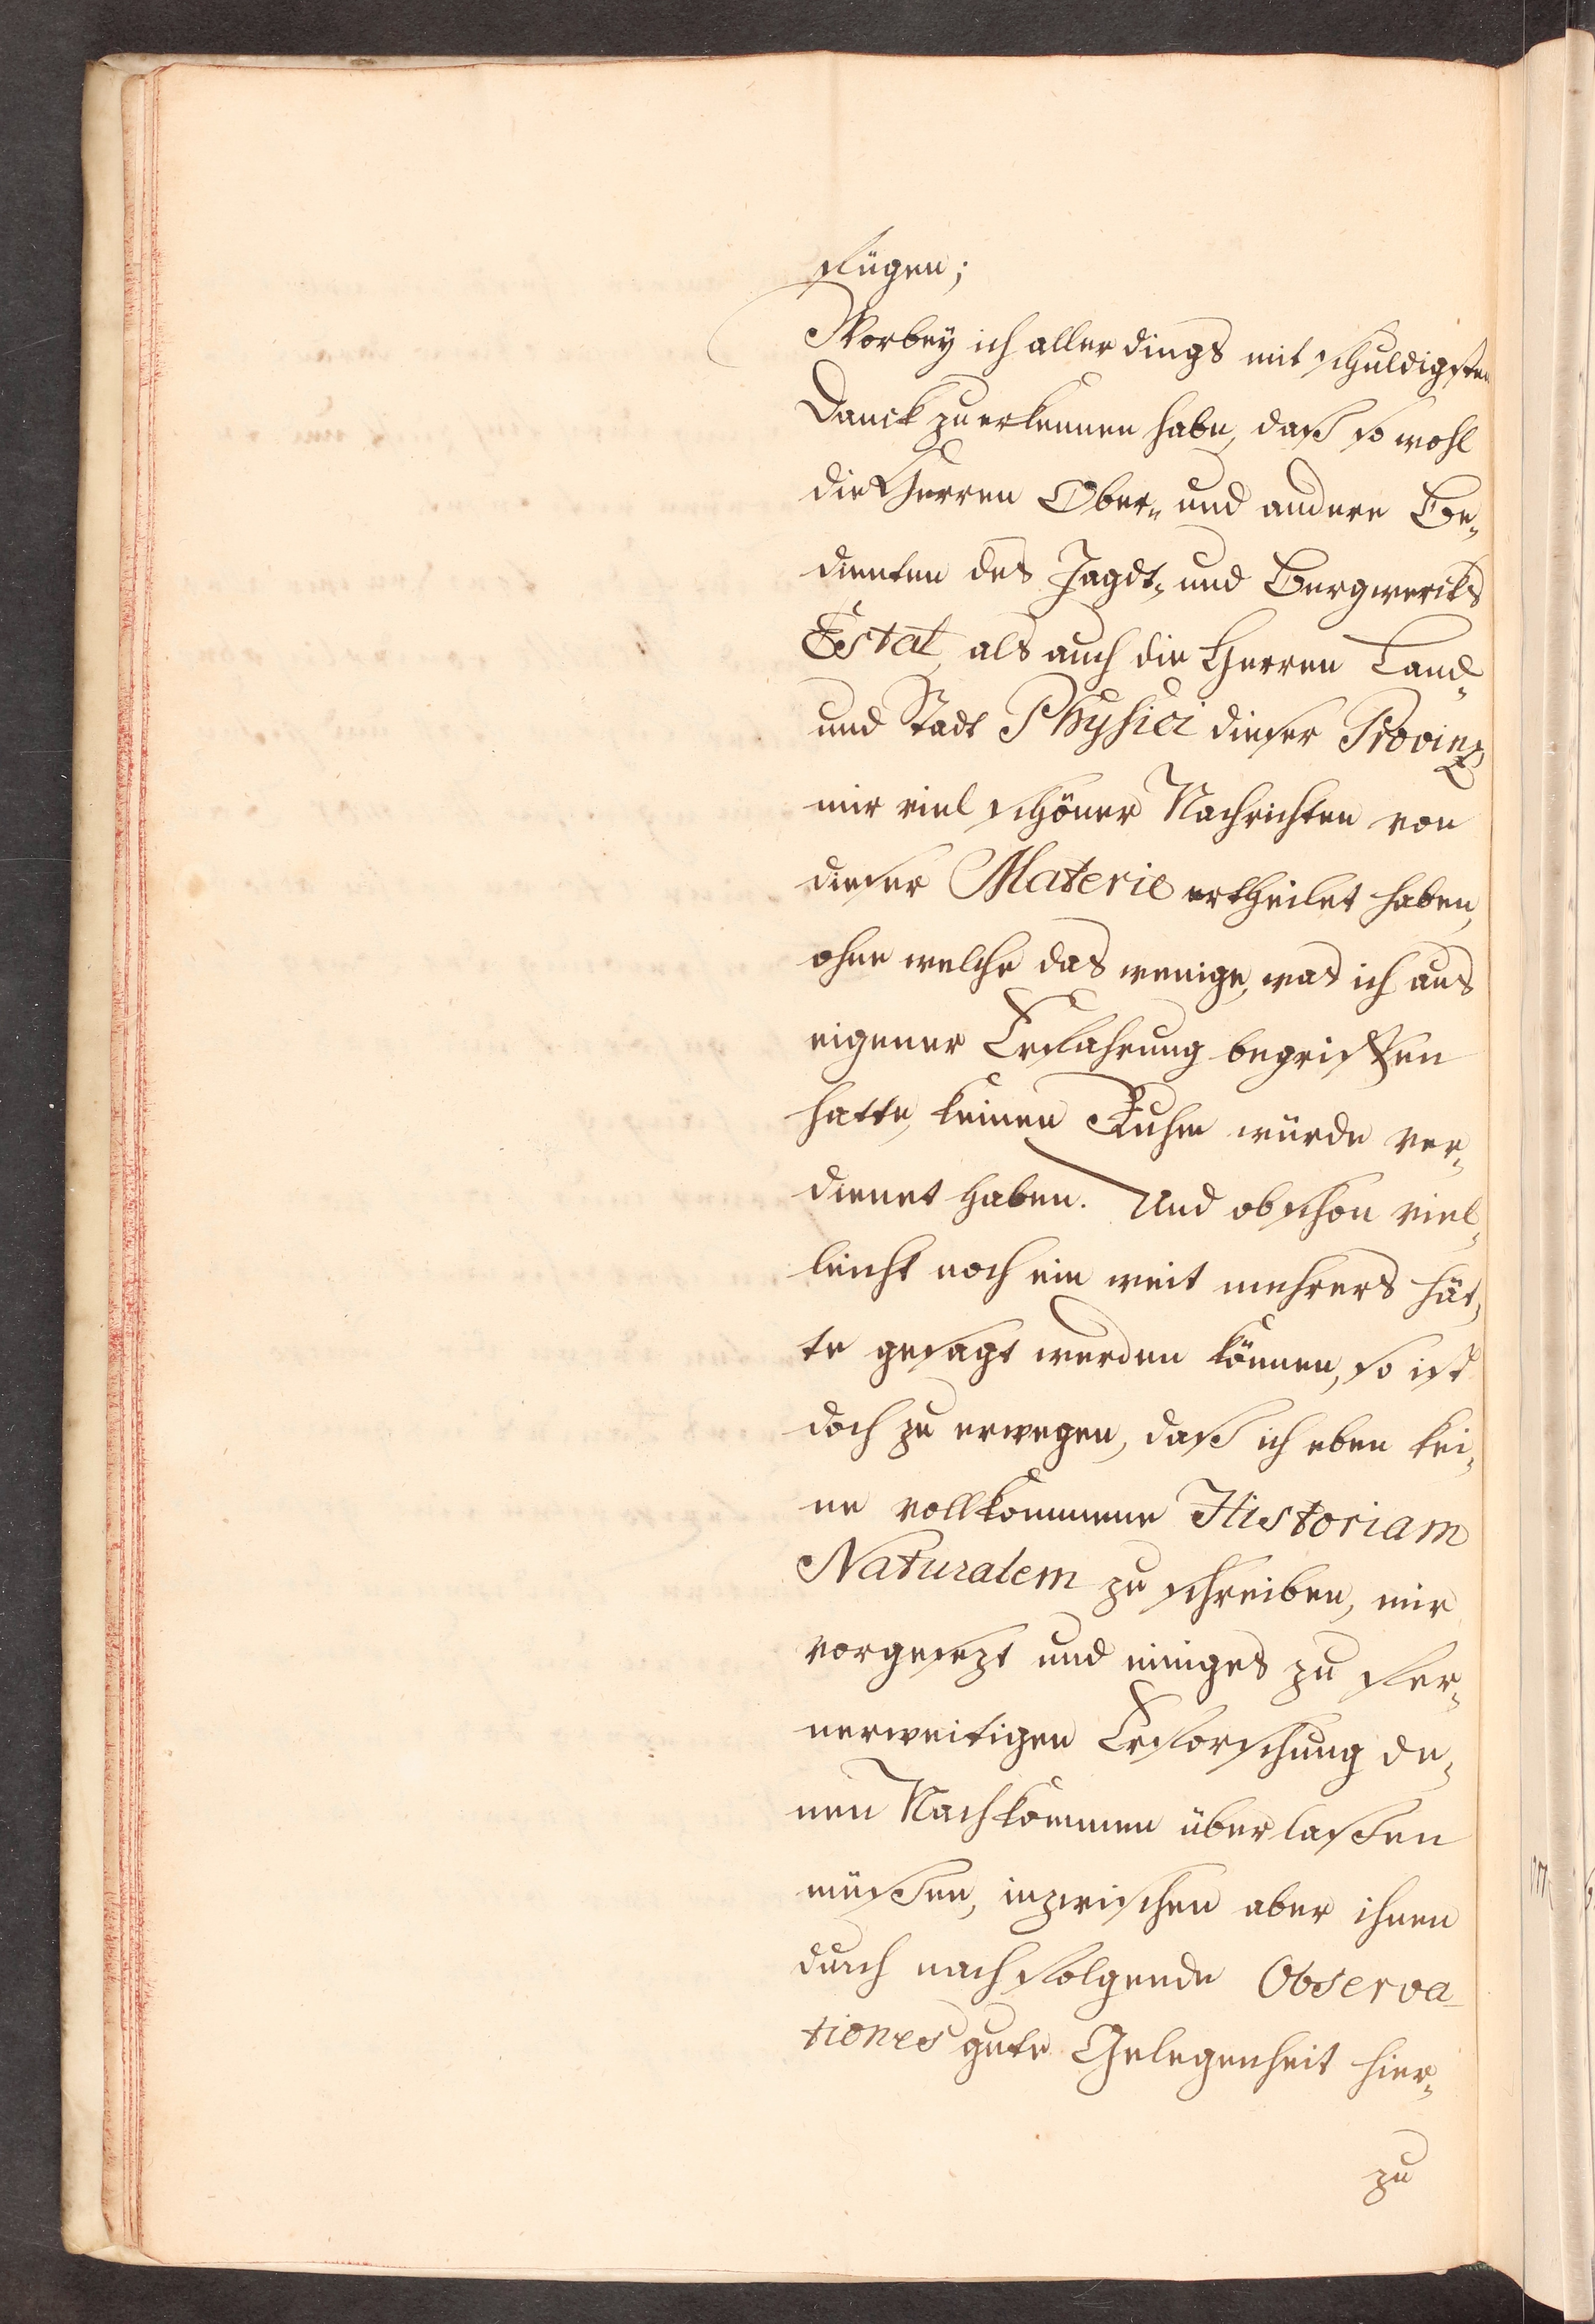 fügen;
Worbey ich aller dings mit schuldigsten
Danck zu erkennen habe, daß so wohl
die Herren Ober- und andere Be-
dienten des Jagdt- und Bergwercks
Estat, als auch die Herren Land-
und Stadt Physici dieser Provintz
mir viel schöner Nachrichten von
dieser Materie ertheilet haben,
ohne welche das wenige, was ich aus
eigener Erfahrung begriffen
hatte, keinen Ruhm würde ver-
dienet haben. Und obschon viel-
leicht noch ein weit mehrers hät-
te gesagt werden können, so ist
doch zu erwegen, daß ich eben kei-
ne vollkommene Historiam
Naturalem zu schreiben, mir
vorgesezt und einiges zu fer-
nerweitigen Erforschung de-
nen Nachkommen überlassen
müssen, inzwischen aber ihnen
durch nachfolgende Observa-
tiones gute Gelegenheit hier-
zu